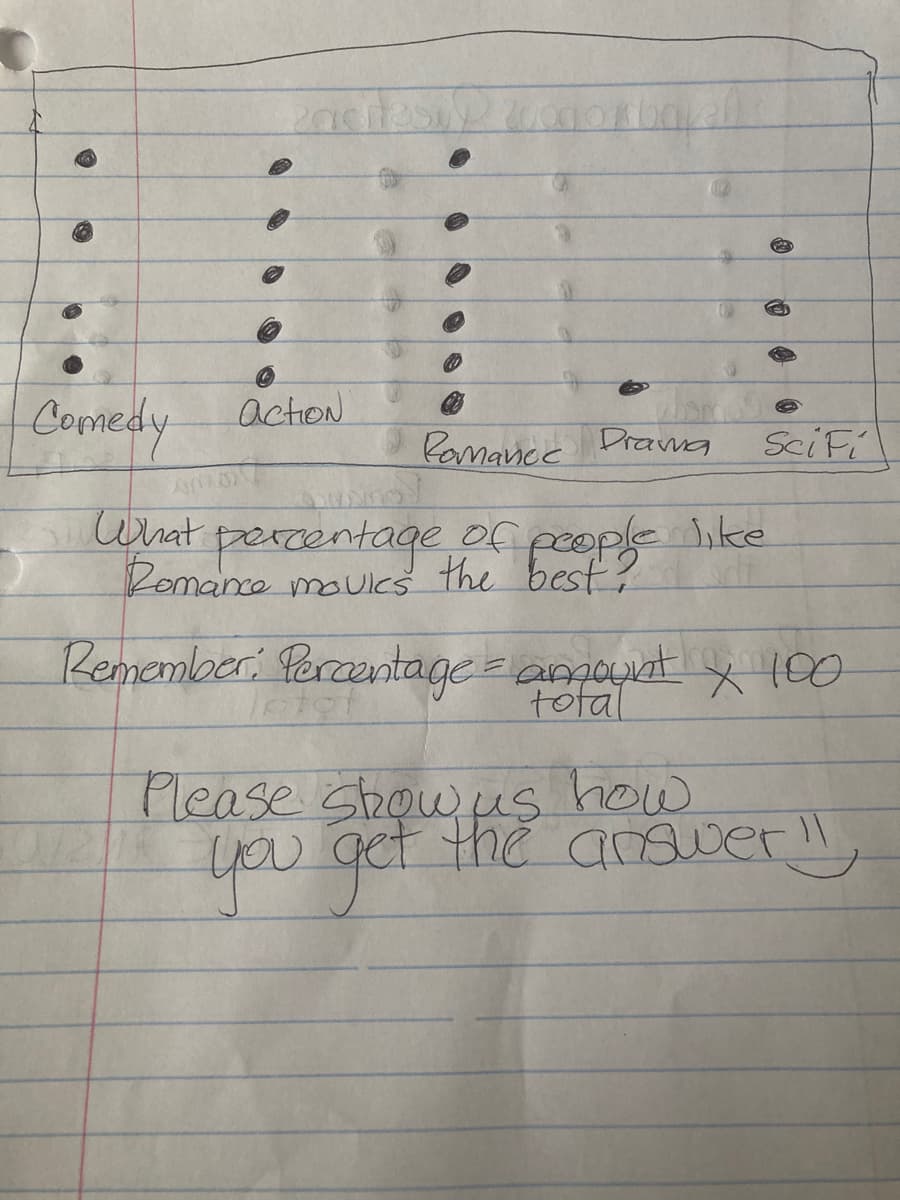 Comedy action Romance Drama SciFi
What percentage of people like
Romance movies the best?
Remember: Percentage = amount x 100
total
Please show us how
you get the answer!!